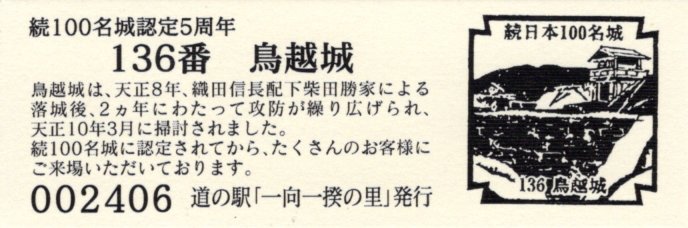 続100名城認定5周年
136番 鳥越城
鳥越城は、天正8年、織田信長配下柴田勝家による
落城後、2ヵ年にわたって攻防が繰り広げられ、
天正10年3月に掃討されました。
続100名城に認定されてから、たくさんのお客様に
ご来場いただいております。
002406 道の駅「一向一揆の里」発行
続日本100名城
136 鳥越城